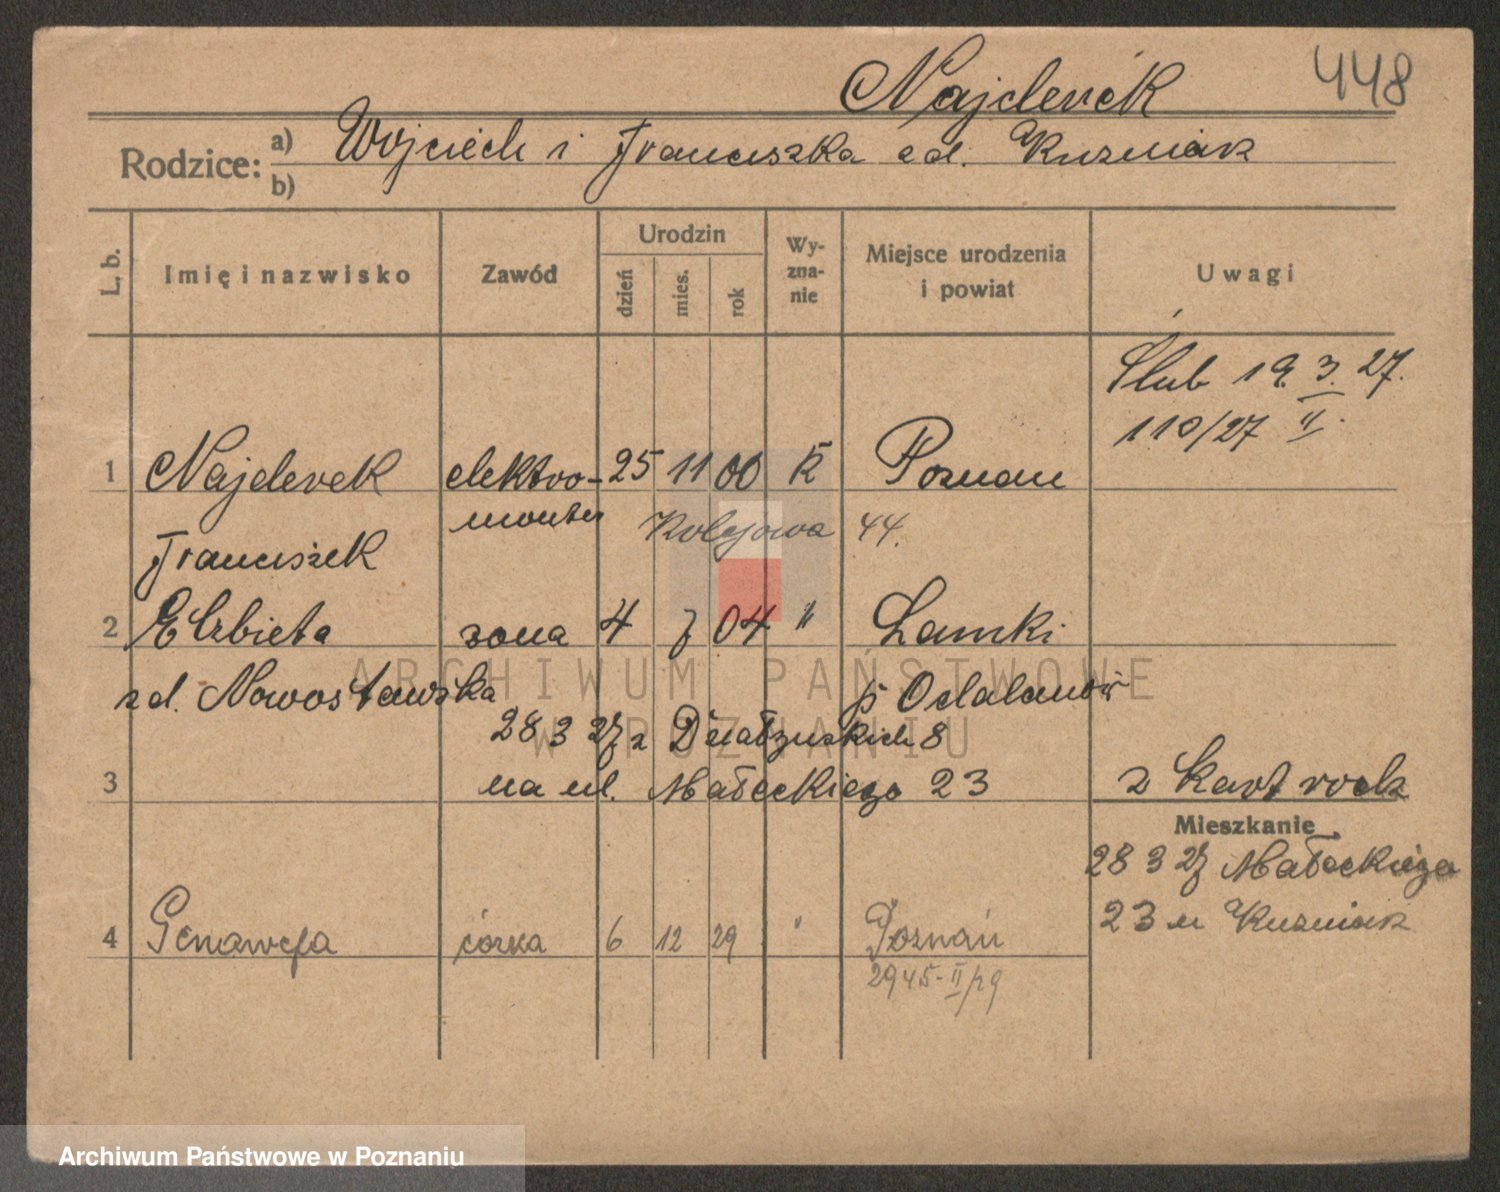 448
Najderek
Rodzice: a) Wojciech i Franciszka zd. Kuzniak
b)
L. b. Imię i nazwisko Zawód Urodzin dzień mies. rok Wyzna-nie Miejsce urodzenia i powiat Uwagi
Ślub 19. 3. 27.
110/27 II.
1 Najderek elektro- 25 11 00 K Poznan
monter Kolejowa 44.
Franciszek
2 Elzbieta zona 4 7 04 " Lamki
zd. Nowostawska p Odalanów
28 3 27 z Działyńskich 8
3 na ul. Małeckiego 23 z Kart rodz
Mieszkanie
28 3 27 Małeckiego
23 u Kuzniak
4 Genowefa córka 6 12 29 " Poznań
2945-II/29
ARCHIWUM PAŃSTWOWE
W POZNANIU
Archiwum Państwowe w Poznaniu